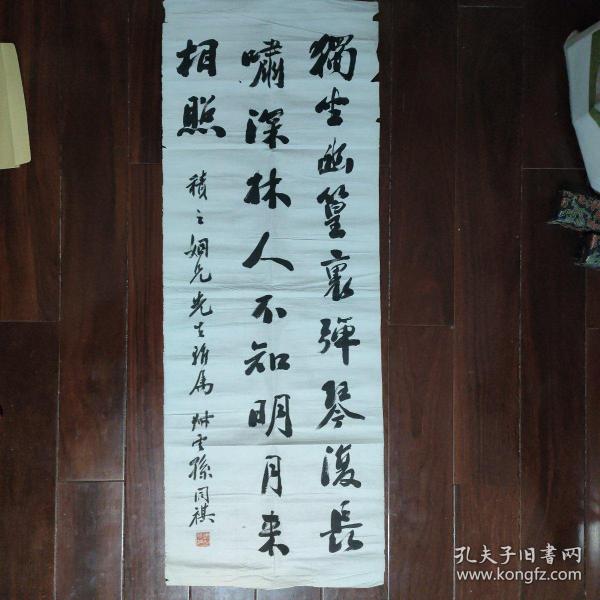 獨坐幽篁裏彈琴復長
嘯深林人不知明月來
相照
積之姻兄先生 屬 雲孫同祺
孔夫子旧書网
www.kongfz.com